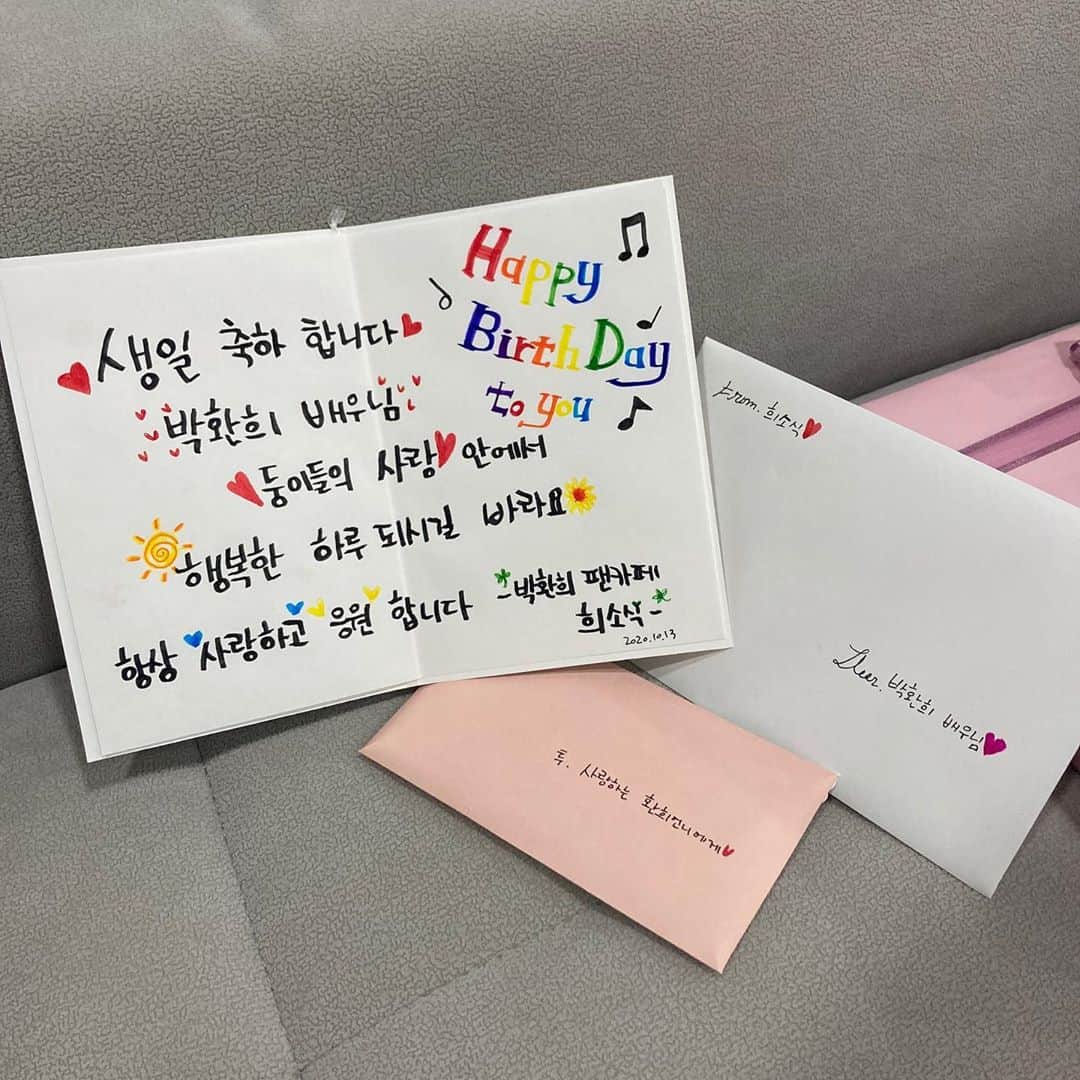 생일 축하 합니다
박환희 배우님
둥이들의 사랑 안에서
행복한 하루 되시길 바라요
항상 사랑하고 응원 합니다
Happy
BirthDay
to you
-박환희 팬카페
희소식-
2020.10.13
From. 희소식
Dear. 박환희 배우님
투. 사랑하는 환희언니에게